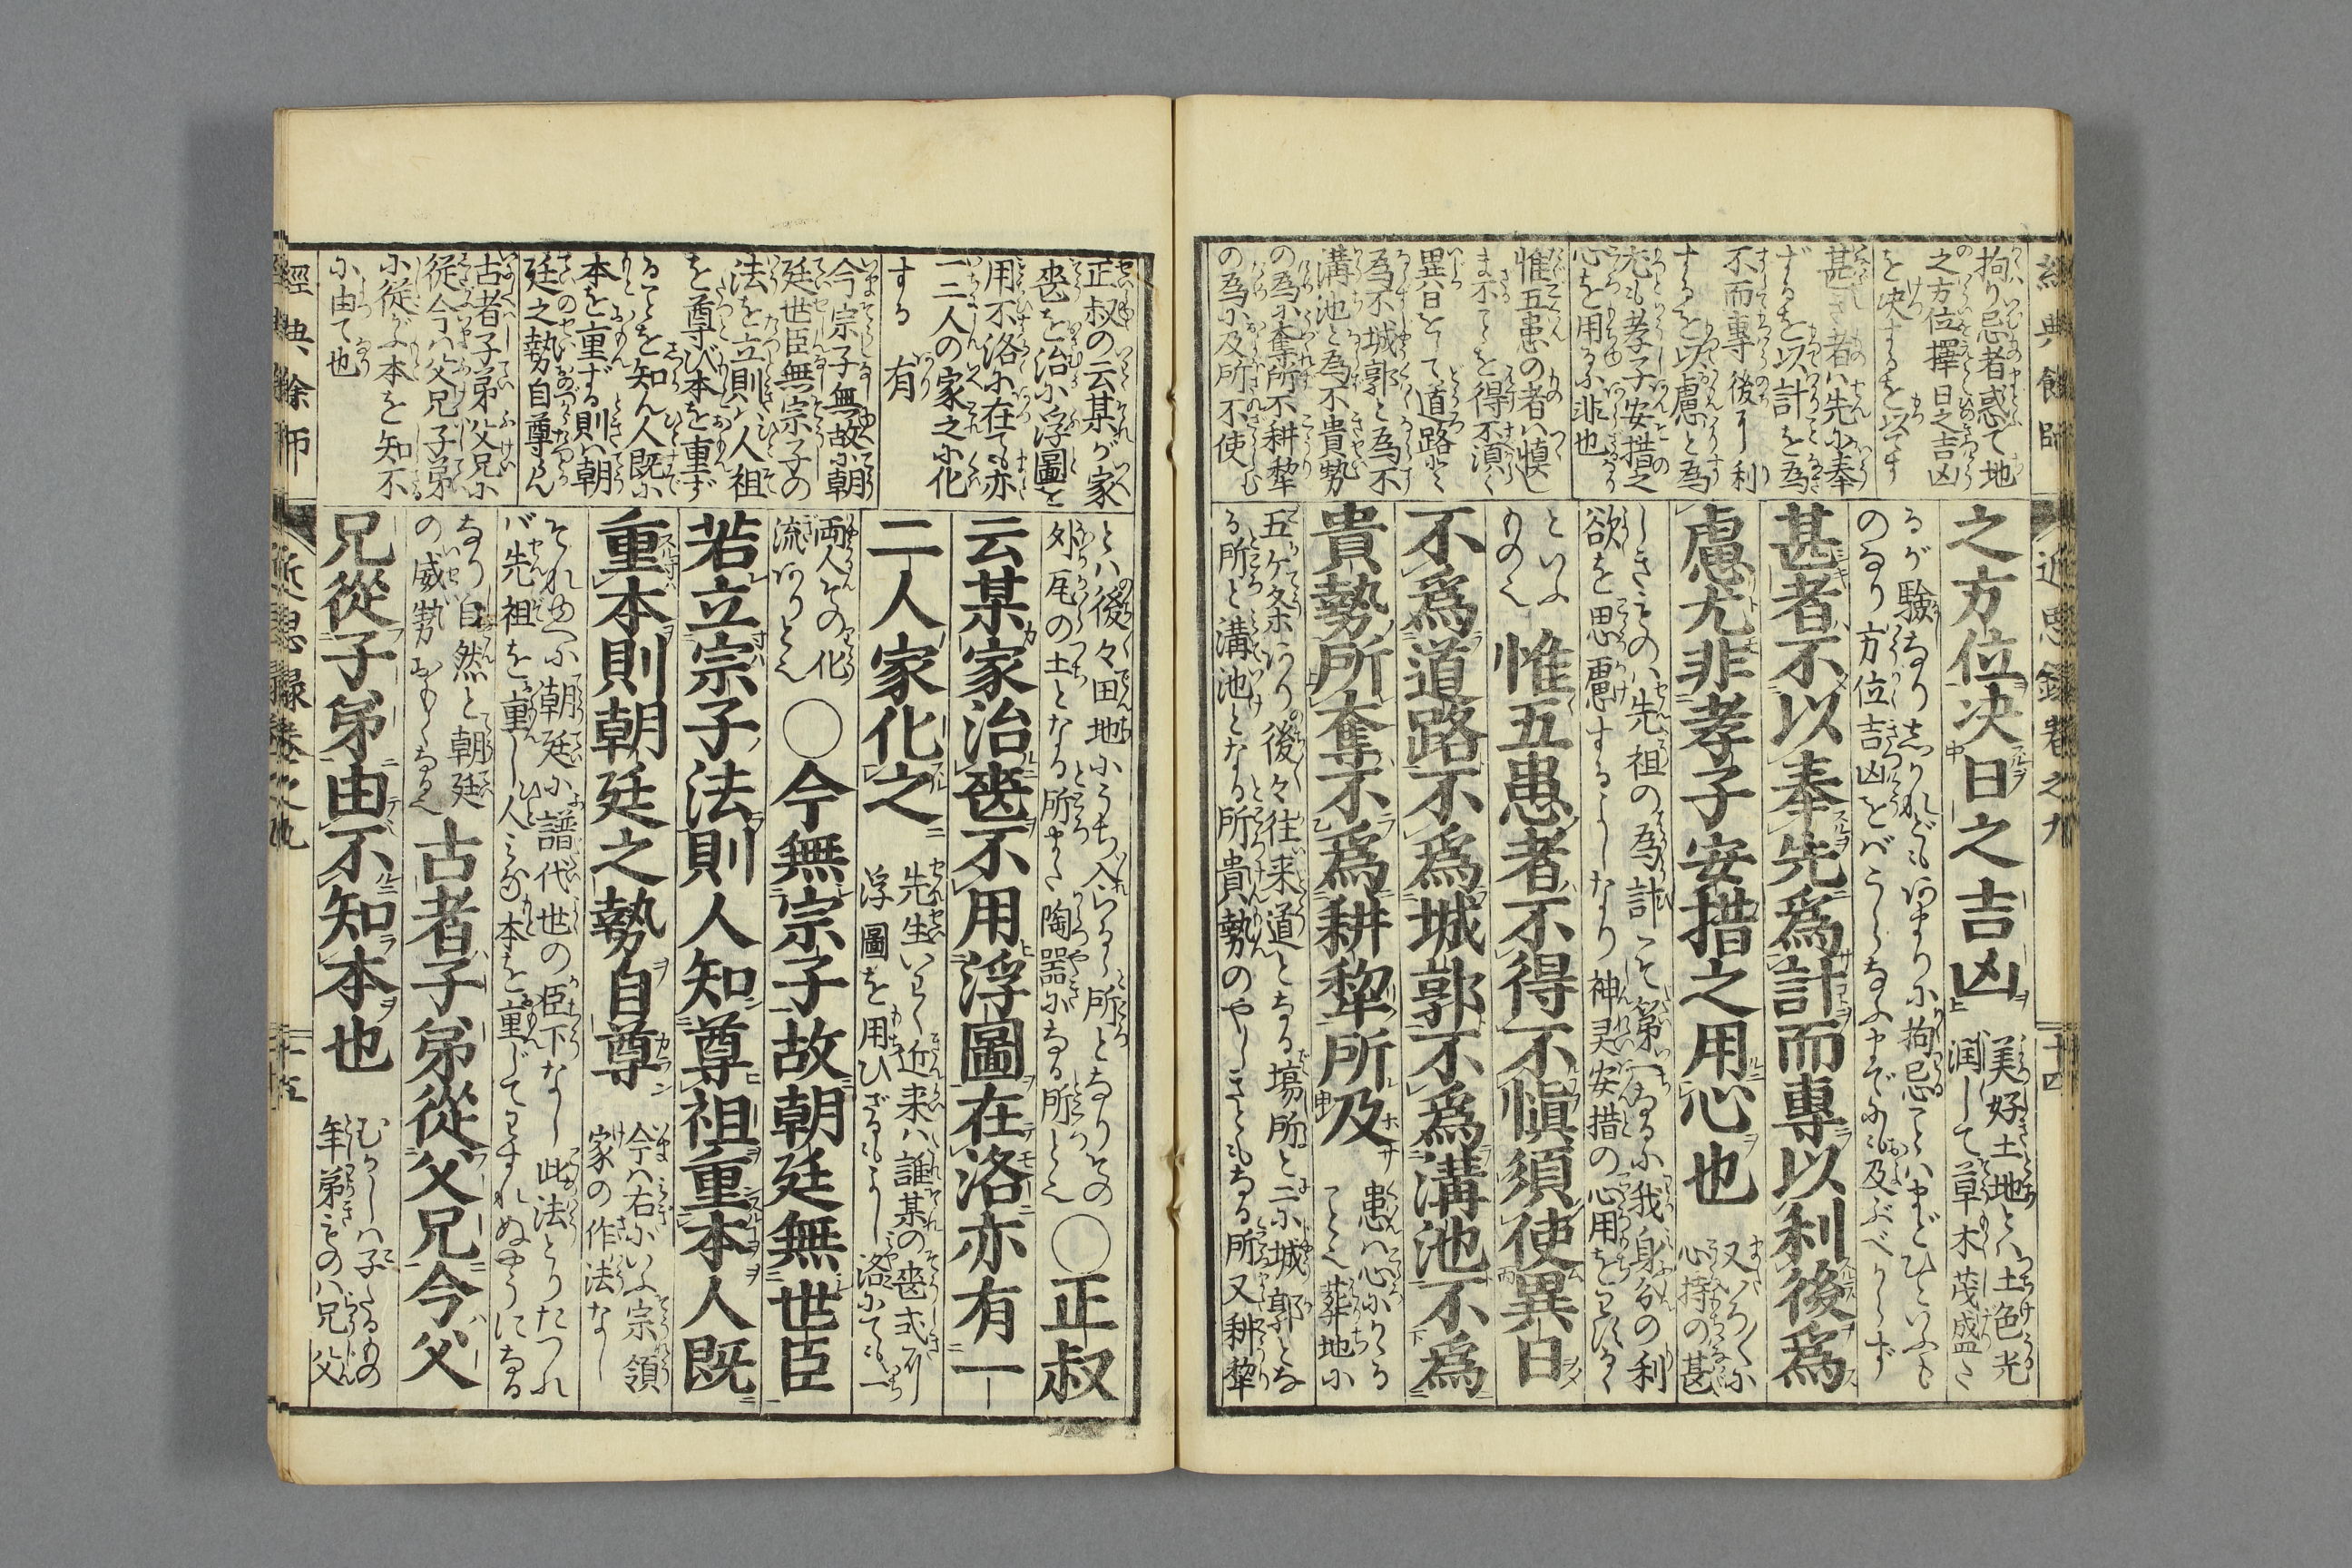 經典餘師
近思錄卷之九
十四
拘り忌者惑て地
之方位擇日之吉凶
を决するを以てす
甚き者ハ先に奉
ずるを以計を為
不而專後に利
するを以慮と為
尤も孝子安措之
心を用るに非也
惟五患の者ハ愼し
ま不ことを得不須く
異日をして道路と
為不城郭と為不
溝池と為不貴勢
の為に奪所不耕犂
の為に及所不使
之方位决日之吉凶
美好土地とハ土色光
潤して草木茂盛た
るが驗なりしかれどもあまりに拘忌ことハまどひといふも
のなり方位吉凶をバうらなふまでにも及ぶべからず
甚者不以奉先爲計而專以利後爲
慮尤非孝子安措之用心也
又いろ〳〵に
心持の甚
しきものハ先祖の為計こそ第一なるに我身分の利
欲を思慮するよしなり神灵安措の心用をわするゝ
といふ
ものゝ
惟五患者不得不愼須使異日
不爲道路不爲城郭不爲溝池不爲
貴勢所奪不爲耕犂所及
患ハ心にかゝる
こと也葬地に
五ケ条あり後々往来道となる塲所と二に城郭とな
る所と溝池となる所貴勢のやしきともなる所又耕犂
とハ後々田地にうち入らるゝ所となりその
外瓦の土となる所また陶器になる所と也
○正叔
云某家治喪不用浮圖在洛亦有一
二人家化之
先生いわく近来ハ誰某の喪式に
浮圖を用ひざるもよし洛にても一
両人その化
流ありと也
○今無宗子故朝廷無世臣
若立宗子法則人知尊祖重本人既
重本則朝廷之勢自尊
今ハ右にいふ宗領
家の作法なし
それゆへに朝廷に譜代世の臣下なし此法とりたつれ
バ先祖を重し人みな本を重じてわすれぬやうになる
なり自然と朝廷
の威勢おもくなる也
古者子弟從父兄今父
兄從子弟由不知本也
むかしハ子たるもの
年弟きものハ兄父
正叔の云某が家
喪を治に浮圖を
用不洛に在ても亦
一二人の家之に化
する有
今宗子無故に朝
廷世臣無宗子の
法を立則ハ人祖
を尊び本を重ず
ることを知ん人既に
本を重ずる則ハ朝
廷之勢自尊らん
古者子弟父兄に
従今ハ父兄子弟
に従ふ本を知不
に由て也
經典餘師
近思錄卷之九
十五